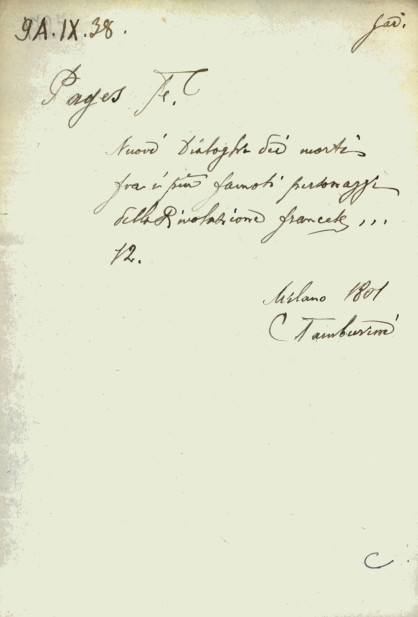 9A.IX.38.
Pages Fe. C
Nuovi Dialoghi dei morti
fra i più famosi personaggi
della Rivoluzione francese ...
12.
Milano 1801
C Tamburini
C